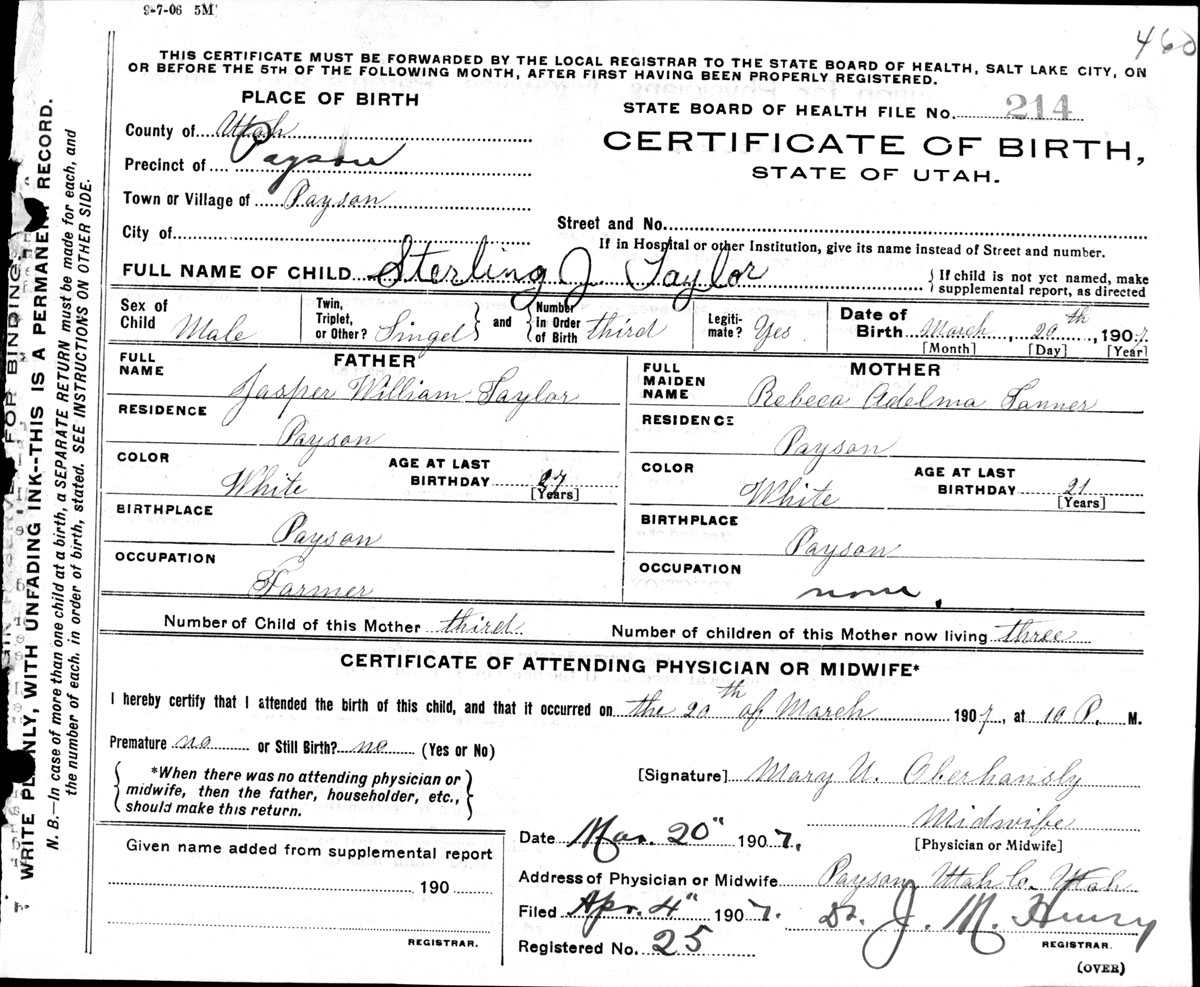 9-7-06 5M
460
THIS CERTIFICATE MUST BE FORWARDED BY THE LOCAL REGISTRAR TO THE STATE BOARD OF HEALTH, SALT LAKE CITY, ON
OR BEFORE THE 5TH OF THE FOLLOWING MONTH, AFTER FIRST HAVING BEEN PROPERLY REGISTERED.
PLACE OF BIRTH
STATE BOARD OF HEALTH FILE No. 214
County of Utah
CERTIFICATE OF BIRTH,
Precinct of Payson
STATE OF UTAH.
Town or Village of Payson
Street and No.
City of
If in Hospital or other Institution, give its name instead of Street and number.
FULL NAME OF CHILD Sterling J. Taylor
{ If child is not yet named, make supplemental report, as directed
Sex of Child Male
Twin, Triplet, or Other? Singel } and { Number in Order of Birth third
Legitimate? Yes
Date of Birth March, 20th, 1907.
[Month] [Day] [Year]
FATHER
FULL NAME Jasper William Taylor
RESIDENCE Payson
COLOR White
AGE AT LAST BIRTHDAY 27
[Years]
BIRTHPLACE Payson
OCCUPATION Farmer
MOTHER
FULL MAIDEN NAME Rebeca Adelma Tanner
RESIDENCE Payson
COLOR White
AGE AT LAST BIRTHDAY 21
[Years]
BIRTHPLACE Payson
OCCUPATION none.
Number of Child of this Mother third
Number of children of this Mother now living three
CERTIFICATE OF ATTENDING PHYSICIAN OR MIDWIFE*
I hereby certify that I attended the birth of this child, and that it occurred on the 20th of March 1907, at 10 P. M.
Premature no or Still Birth? no (Yes or No)
{ *When there was no attending physician or
midwife, then the father, householder, etc.,
should make this return. }
[Signature] Mary U. Oberhansly
Midwife
[Physician or Midwife]
Date Mar. 20" 1907.
Given name added from supplemental report
190
REGISTRAR.
Address of Physician or Midwife Payson Utah Co. Utah
Filed Apr. 4" 1907. Dr. J. M. Henry
REGISTRAR.
Registered No. 25
(OVER)
WRITE PLAINLY, WITH UNFADING INK--THIS IS A PERMANENT RECORD.
N. B.—In case of more than one child at a birth, a SEPARATE RETURN must be made for each, and
the number of each, in order of birth, stated. SEE INSTRUCTIONS ON OTHER SIDE.
FOR BINDING.